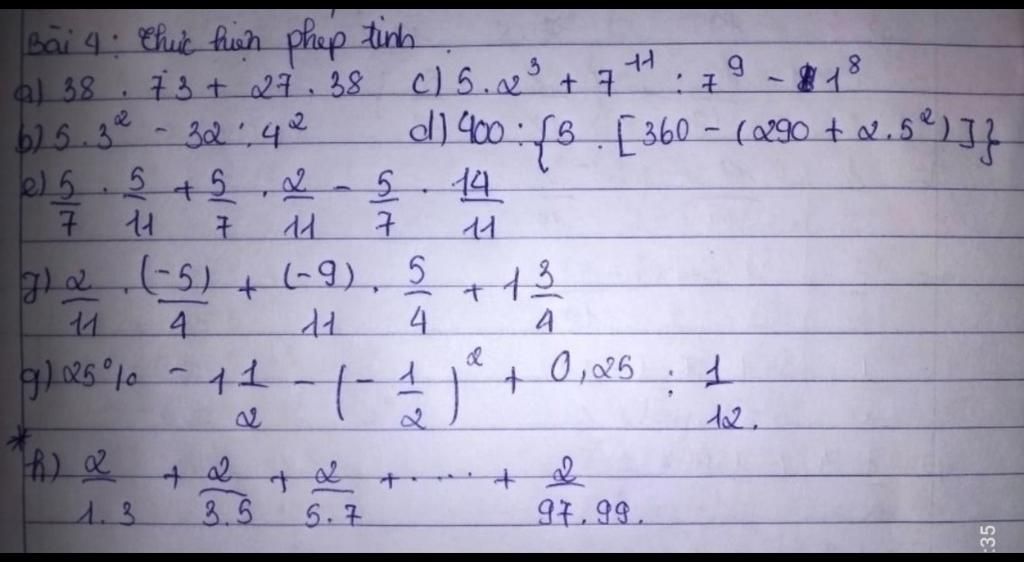 Bài 4: Thực hiện phép tính.
a) 38 . 73 + 27 . 38 c) 5 . 2³ + 7⁻¹¹ : 7⁹ - 1⁸
b) 5 . 3² - 32 : 4² d) 400 : {5 . [360 - (290 + 2 . 5²)]}
e) 5/7 . 5/11 + 5/7 . 2/11 - 5/7 . 14/11
g) 2/11 . (-5)/4 + (-9)/11 . 5/4 + 1 3/4
g) 25% - 1 1/2 - (- 1/2)² + 0,25 : 1/12.
*h) 2/1.3 + 2/3.5 + 2/5.7 + ..... + 2/97.99.
:35